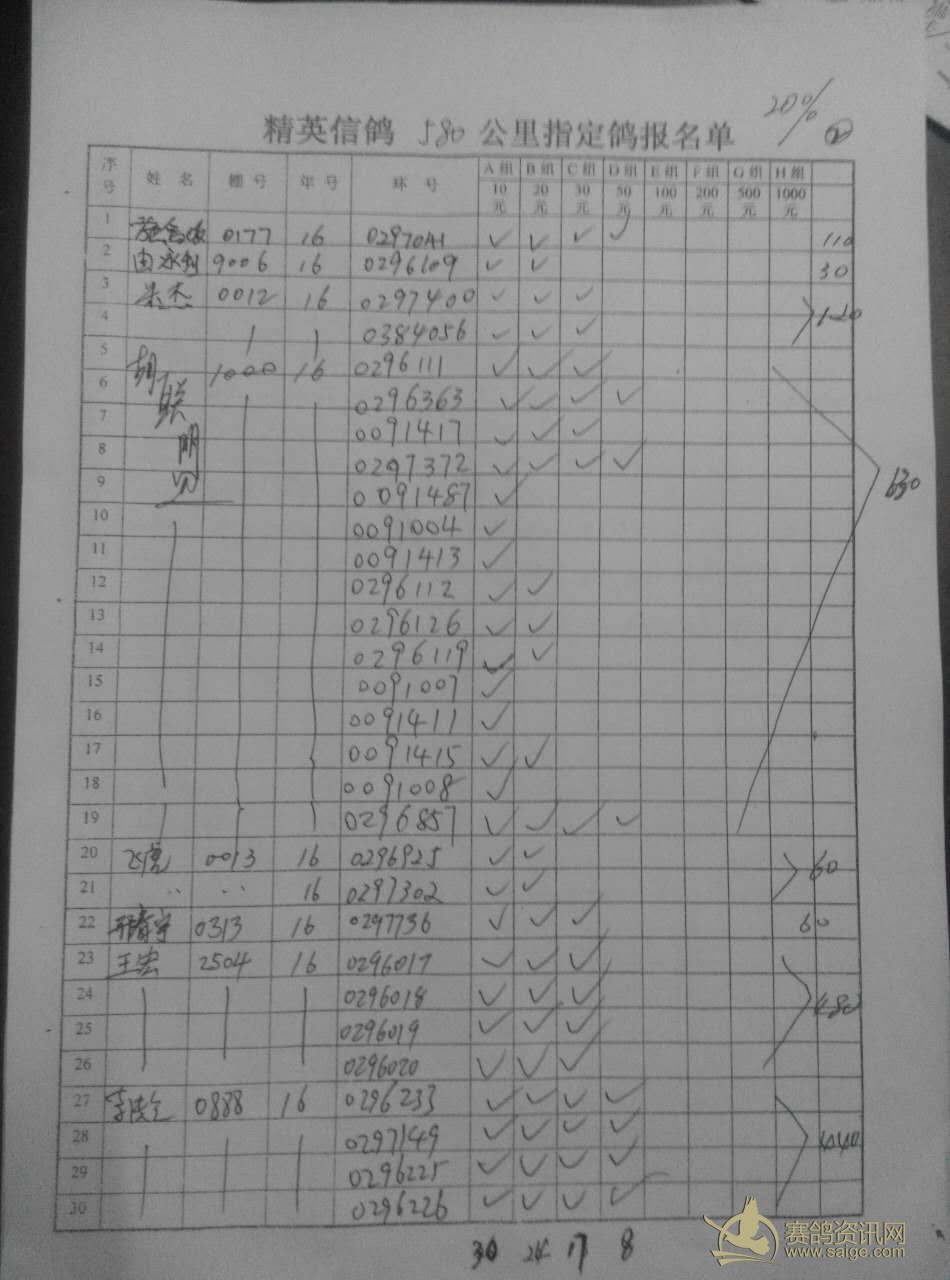 20% ②
精英信鸽 580 公里指定鸽报名单
序号 姓 名 棚 号 年 号 环 号 A 组 10元 B 组 20元 C 组 30元 D 组 50元 E 组 100元 F 组 200元 G 组 500元 H 组 1000元
1 0177 16 ✓ ✓ ✓ ✓ 110
2 由永利 9006 16 0296109 ✓ ✓ 30
3 朱杰 0012 16 0297400 ✓ ✓ ✓ 120
4 0384056 ✓ ✓ ✓
5 胡联明 1000 16 0296111 ✓ ✓ ✓
6 0296363 ✓ ✓ ✓ ✓
7 0091417 ✓ ✓ ✓
8 0297372 ✓ ✓ ✓ ✓
9 0091487 ✓
10 0091004 ✓
11 0091413 ✓
12 0296112 ✓ ✓
13 0296126 ✓ ✓
14 0296119 ✓ ✓
15 0091007 ✓
16 0091411 ✓
17 0091415 ✓ ✓
18 0091008 ✓
19 0296857 ✓ ✓ ✓ ✓
20 飞虎 0013 16 0296925 ✓ ✓ 60
21 16 0297302 ✓ ✓
22 0313 16 0297736 ✓ ✓ ✓ 60
23 王宏 2504 16 0296017 ✓ ✓ ✓
24 0296018 ✓ ✓ ✓
25 0296019 ✓ ✓ ✓
26 0296020 ✓ ✓ ✓
27 0888 16 0296233 ✓ ✓ ✓ ✓
28 0297149 ✓ ✓ ✓ ✓ 440
29 0296225 ✓ ✓ ✓ ✓
30 0296226 ✓ ✓ ✓ ✓
30 24 17 8
赛鸽资讯网
www.saige.com